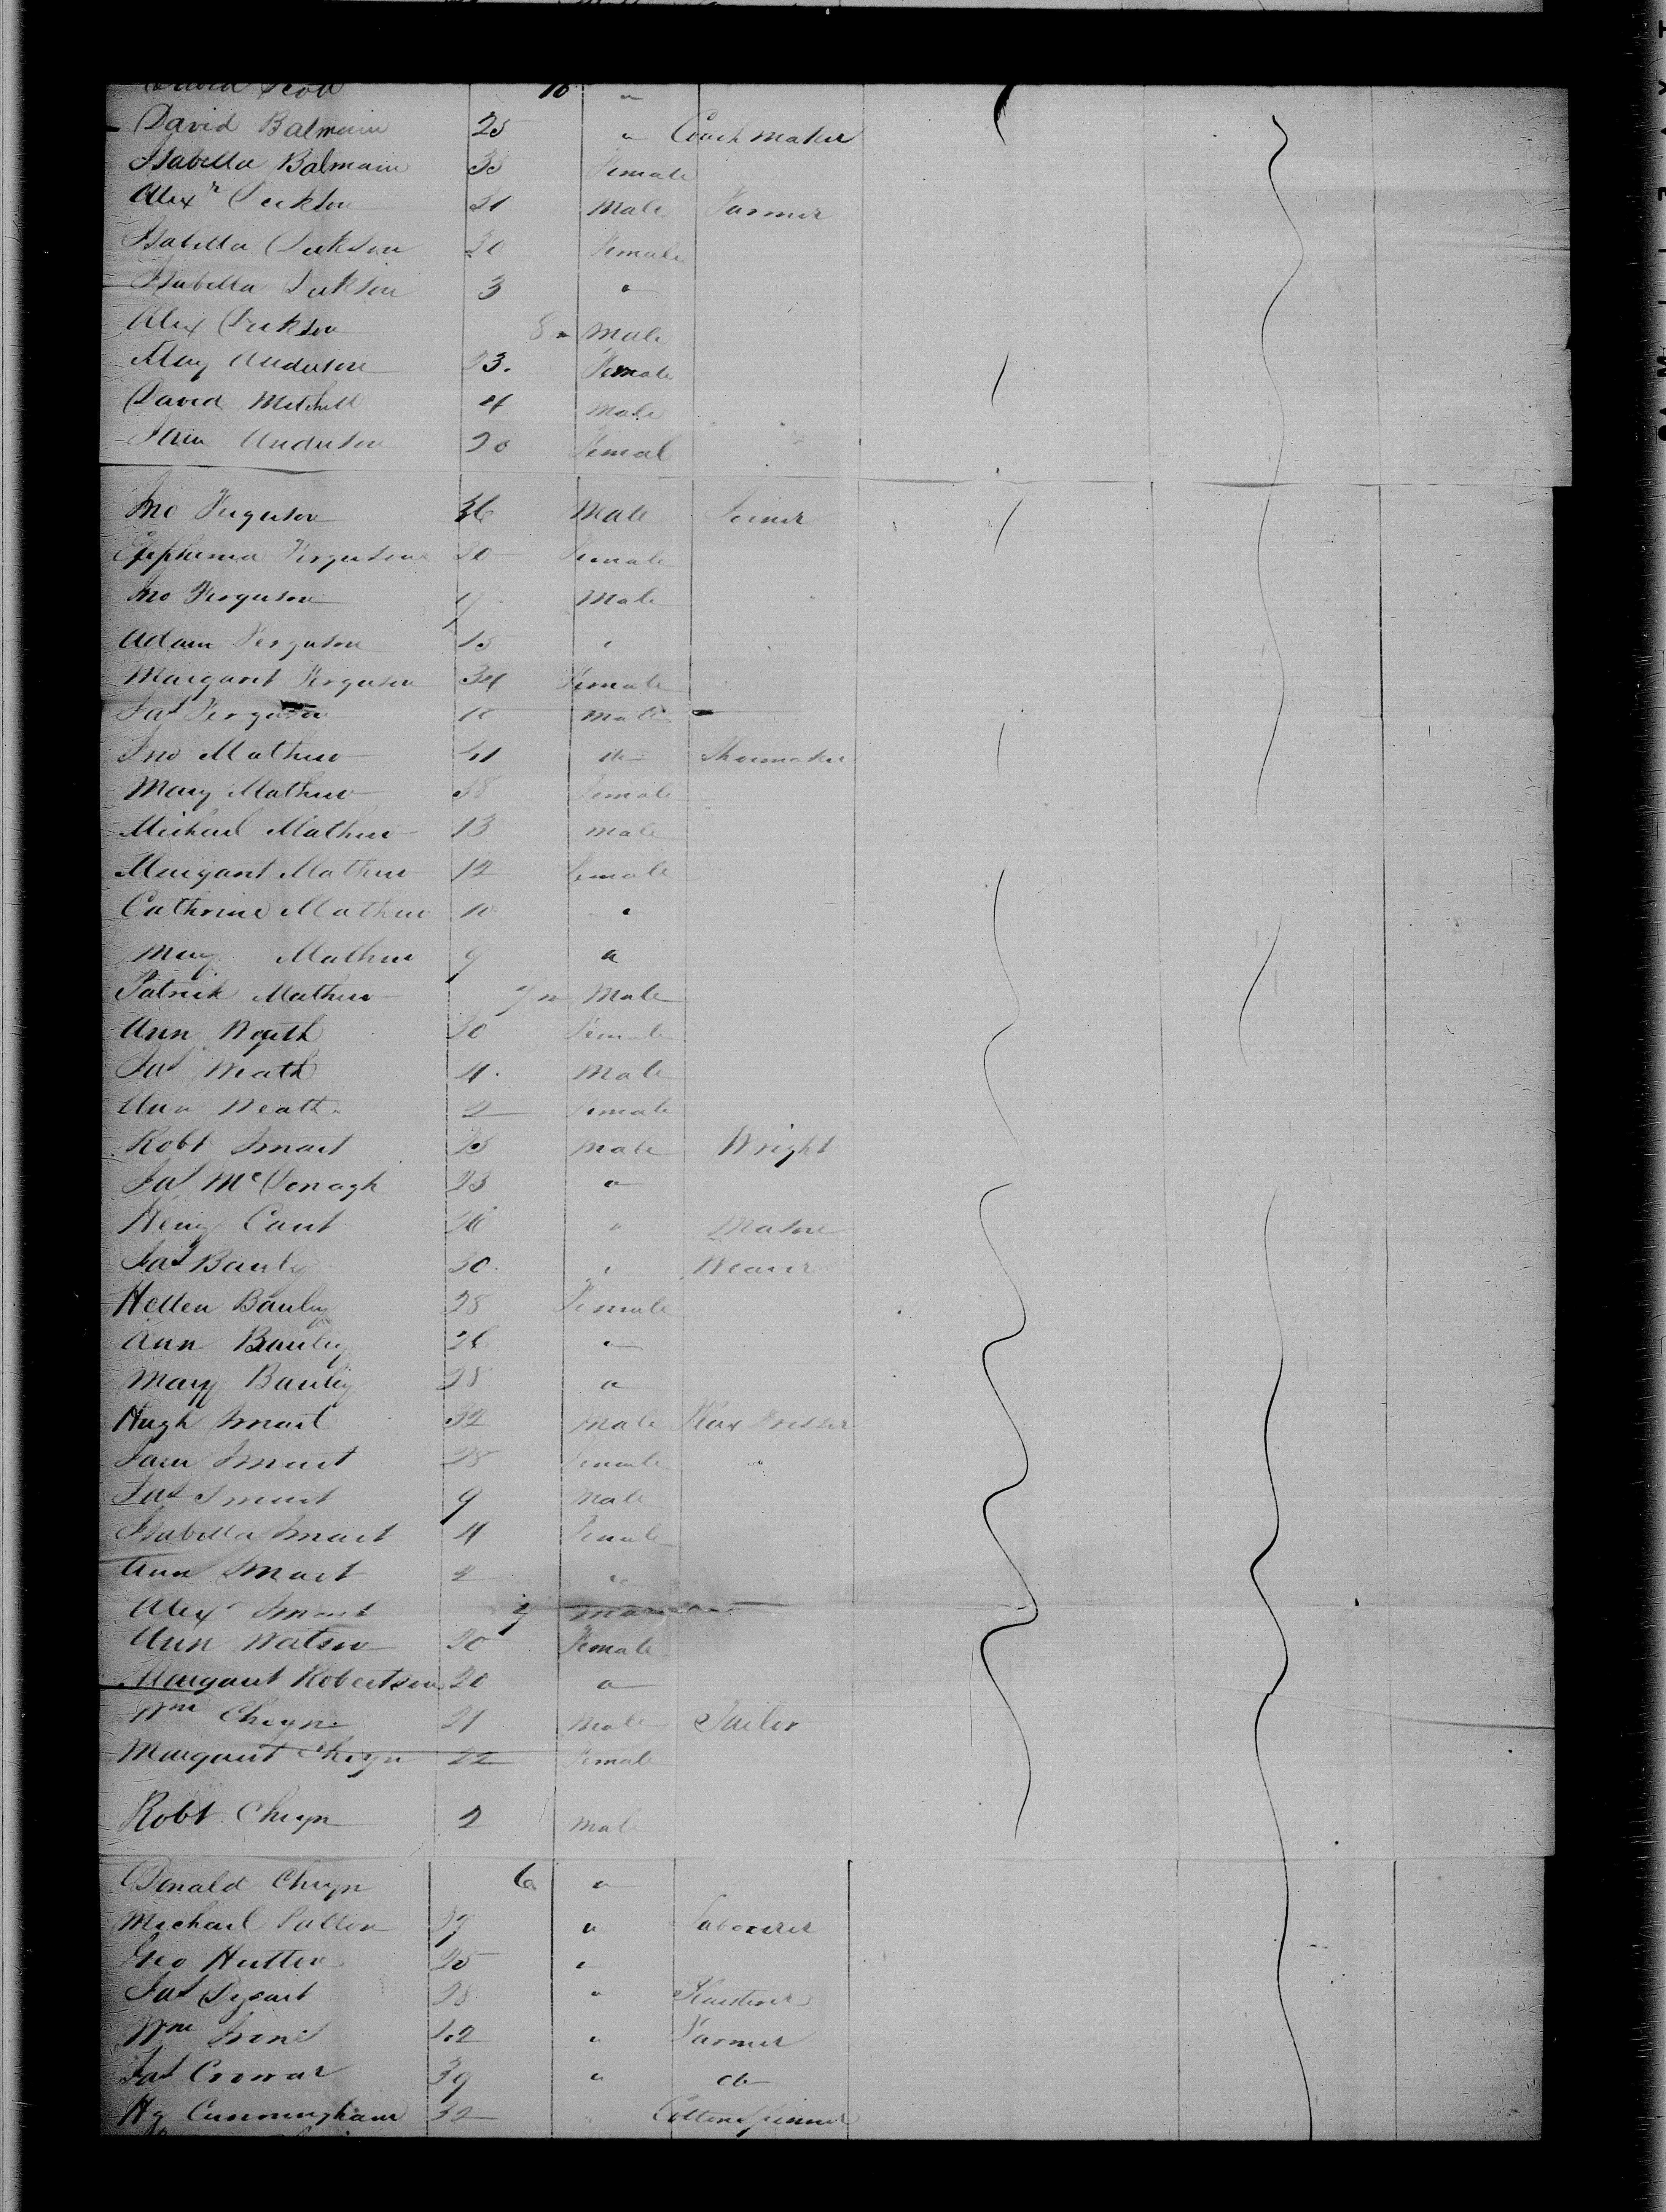 David 10 "
David Balmain 25 " Coachmaker
Isabella Balmain 35 Female
Alexr Dickson 31 Male Farmer
Isabella Dickson 30 Female
Isabella Dickson 3 "
Alex Dickson 8 Male
May Anderson 23. Female
David Mitchell 4 Male
Jain Anderson 20 Femal
Jno Ferguson 36 Male Joiner
Epphemia Ferguson 20 Female
Jno Ferguson 17 Male
Adam Ferguson 15 "
Margaret Ferguson 34 Female
Jas Ferguson Male
Jno Mathew 41 do Shoemaker
Mary Mathew 38 Female
Michael Mathew 13 Male
Margaret Mathew 12 Female
Cathrine Mathew 10 "
Mary Mathew 9 "
Patrick Mathew Male
Ann 30 Female
Jas 4 Male
Ann 2 Female
Robt Smart 25 Male Wright
Jas McDonagh 23 "
Henry Cant 26 " Mason
Jas 30 " Weaver
Hellen 28 Female
Ann 26 "
Mary 28 "
Hugh Smart 32 Male Flax Dresser
Jain Smart 28 Female "
Jas Smart 9 Male
Isabella Smart 4 Female
Ann Smart 2 "
Alexr Smart
Ann Watson 20 Female
Margaret Robertson 20 "
Wm Cheyn 21 Male Tailor
Margaret Cheyn 22 Female
Robt Cheyn 2 Male
Donald Cheyn 6 "
Michael 27 " Labourer
Geo Hutton 25 "
Jas Dysart 28 " Plasterer
Wm 42 " Farmer
Jas 39 " do
Hy Cunningham 32 " Cotton Spinner